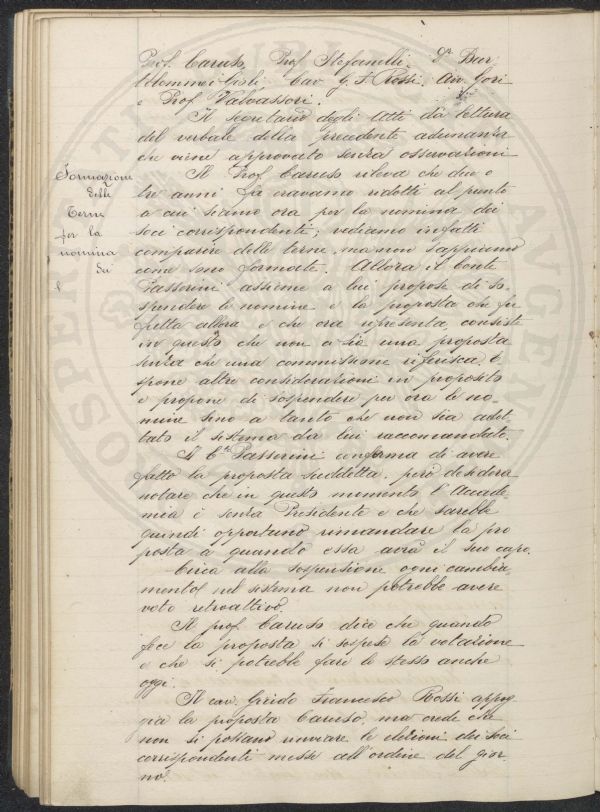 Prof. Caruso, Prof Stefanelli. Dr Bar
Ulommei Cav. G. F. Rossi. Avv. Gori
e Prof Valvassori.
Il segretario degli Atti dà lettura
del verbale della precedente adunanza
che viene approvato senza osservazioni
Formazione
delle
Terne
per la
nomina
dei
Il Prof. Caruso rileva che due o
tre anni fa eravamo ridotti al punto
a cui siamo ora per la nomina dei
soci corrispondenti; vediamo infatti
comparire delle terne, ma non sappiamo
come sono formate. Allora il Conte
Passerini assieme a lui propose di so-
spendere le nomine e la proposta che fu
fatta allora e che ora ripresenta, consiste
in questo che non vi sia una proposta
senza che una commissione riferisca, e
spone altre considerazioni in proposito
e propone di sospendere per ora le no-
mine sino a tanto che non sia adot-
tato il sistema da lui raccomandato.
Il Cte Passerini conferma di avere
fatto la proposta suddetta, però desidera
notare che in questo momento l'Accade-
mia è senza Presidente e che sarebbe
quindi opportuno rimandare la pro
posta a quando essa avrà il suo capo.
Circa alla sospensione ogni cambia-
mento nel sistema non potrebbe avere
voto retroattivo.
Il prof. Caruso dice che quando
fece la proposta si sospese la votazione
e che si potrebbe fare lo stesso anche
oggi.
Il cav. Guido Francesco Rossi appog
gia la proposta Caruso, ma crede che
non si possano rinviare le elezioni dei soci
corrispondenti messe all'ordine del gior-
no.